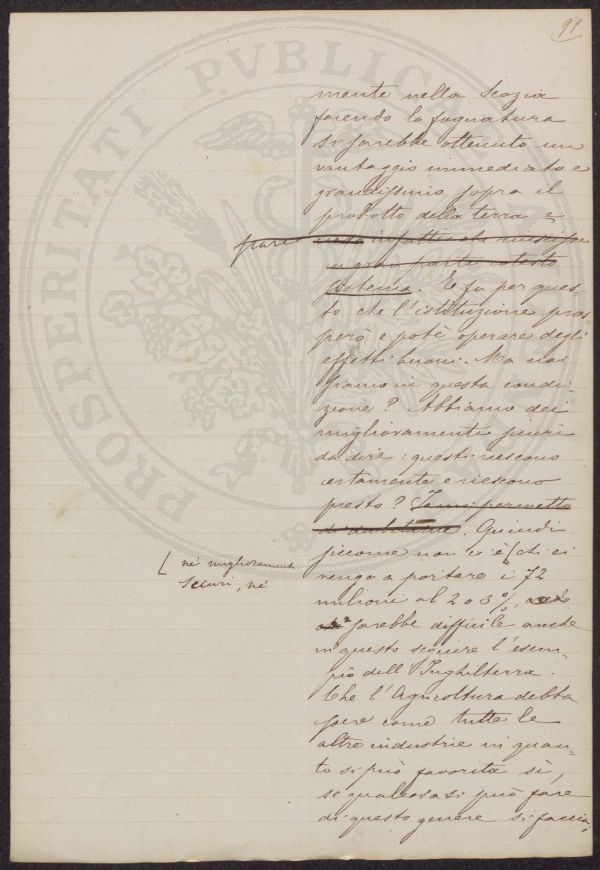 91
PROSPERITATI PVBLICAE
mente nella Scozia
facendo la fognatura
si sarebbe ottenuto un
vantaggio immediato e
grandissimo sopra il
prodotto della terra e
infatti che
in gran parte questo
sistema. E fu per ques-
to che l'istituzione pros
però e potè operare degli
effetti buoni. Ma noi
siamo in questa condi-
zione? Abbiamo dei
miglioramenti sicuri
da dire: questi riescono
certamente e riescono
presto? Io mi permetto
di dubitarne. Quindi
siccome non ci è [chi ci
né miglioramenti
sicuri, né
venga a portare i 72
milioni al 2 o 3%,
sarebbe difficile anche
in questo seguire l'esem-
pio dell'Inghilterra.
Che l'Agricoltura debba
essere come tutte le
altre industrie in quan-
to si può favorita sì,
se qualcosa si può fare
di questo genere si faccia,